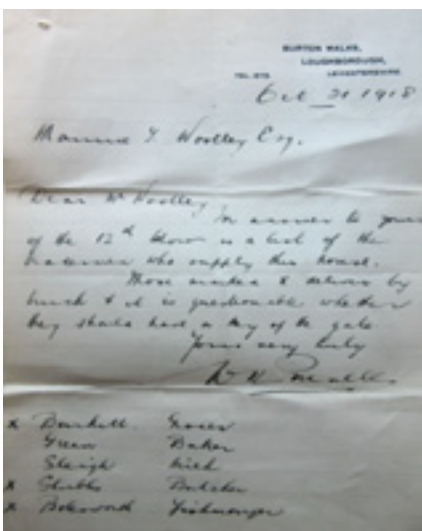 BURTON WALKS,
LOUGHBOROUGH,
LEICESTERSHIRE.
Oct 21 1918
Woolley Esq.
Dear Mr Woolley
In answer to yours
of the 12th below is a list of the
who supply this house.
Those marked x deliver by
& it is questionable whether
they should have a key of the gate
Yours very truly
x Grocer
Green Baker
Sleigh Milk
x Stubbs Butcher
x Botsword Fishmonger